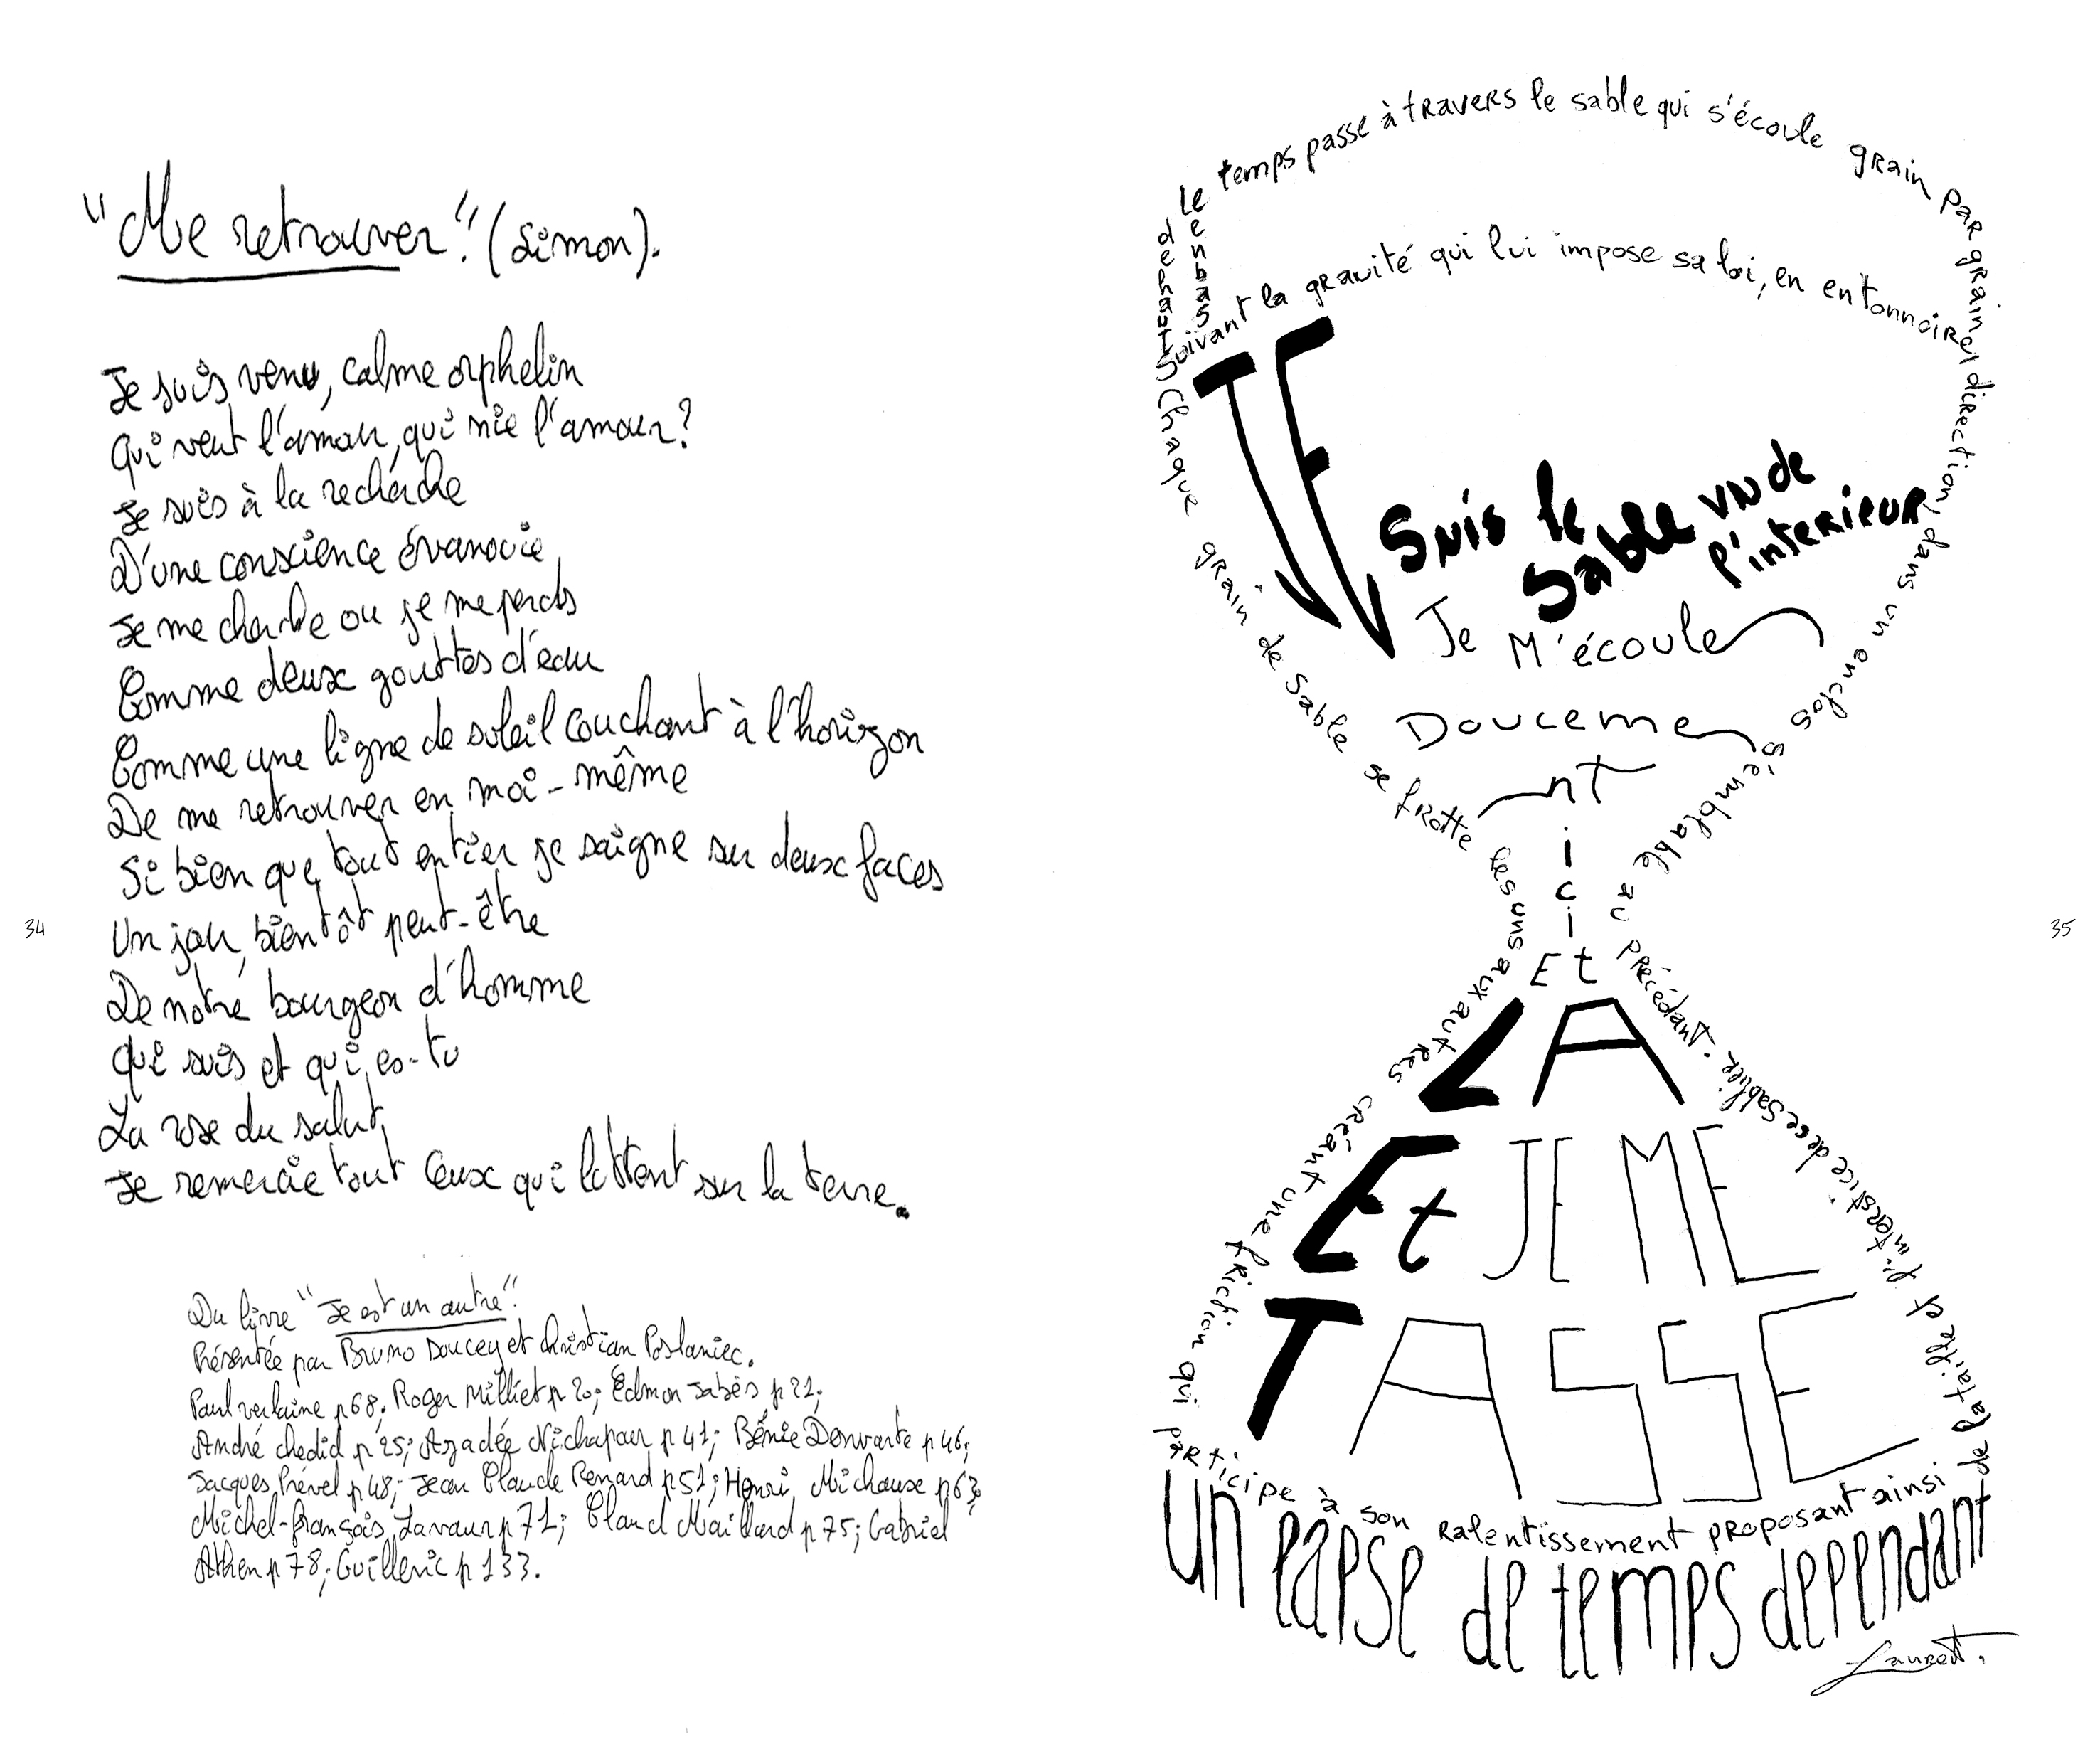 "Me retrouver" (Simon).
Je suis venu, calme orphelin
Qui veut l'amour, qui nie l'amour?
Je suis à la recherche
D'une conscience évanouie
Je me cherche ou je me perds
Comme deux gouttes d'eau
Comme une ligne de soleil couchant à l'horizon
De me retrouver en moi-même
Si bien que tout entier je saigne sur deux faces
Un jour, bientôt peut-être
De notre bourgeon d'homme
Qui suis et qui es-tu
La rose du salut
Je remercie tout ceux qui luttent sur la terre.
Du livre "Je est un autre".
Présentée par Bruno Doucey et christian Poslaniec.
Paul verlaine p 68; Roger Milliet p 20; Edmon Jabès p 21;
André chedid p 25; Azadée Nichapour p 41; p 46;
Jacques Prével p 48; Jean Claude Renard p 51; Henri Michaux p 63
Michel-François Lavaur p 71; Claud Maillard p 75; Gabriel
Athen p 78; Guillevic p 133.
34
Le temps passe à travers le sable qui s'écoule grain par grain
de haut en bas
Suivant la gravité qui lui impose sa loi, en entonnoir
direction, dans un enclos s'emblable au précédant.
JE
Suis le
sable vu de
l'interieur
Je M'écoule
Douceme
nt
i
c
i
Et
LA
Et JE ME
TASSE
Chaque grain de sable se frotte les uns aux autres créant une friction qui
participe à son ralentissement proposant ainsi
un lapse de temps dependant
de la taille et l'interstice de ce sablier.
Laurent.
35